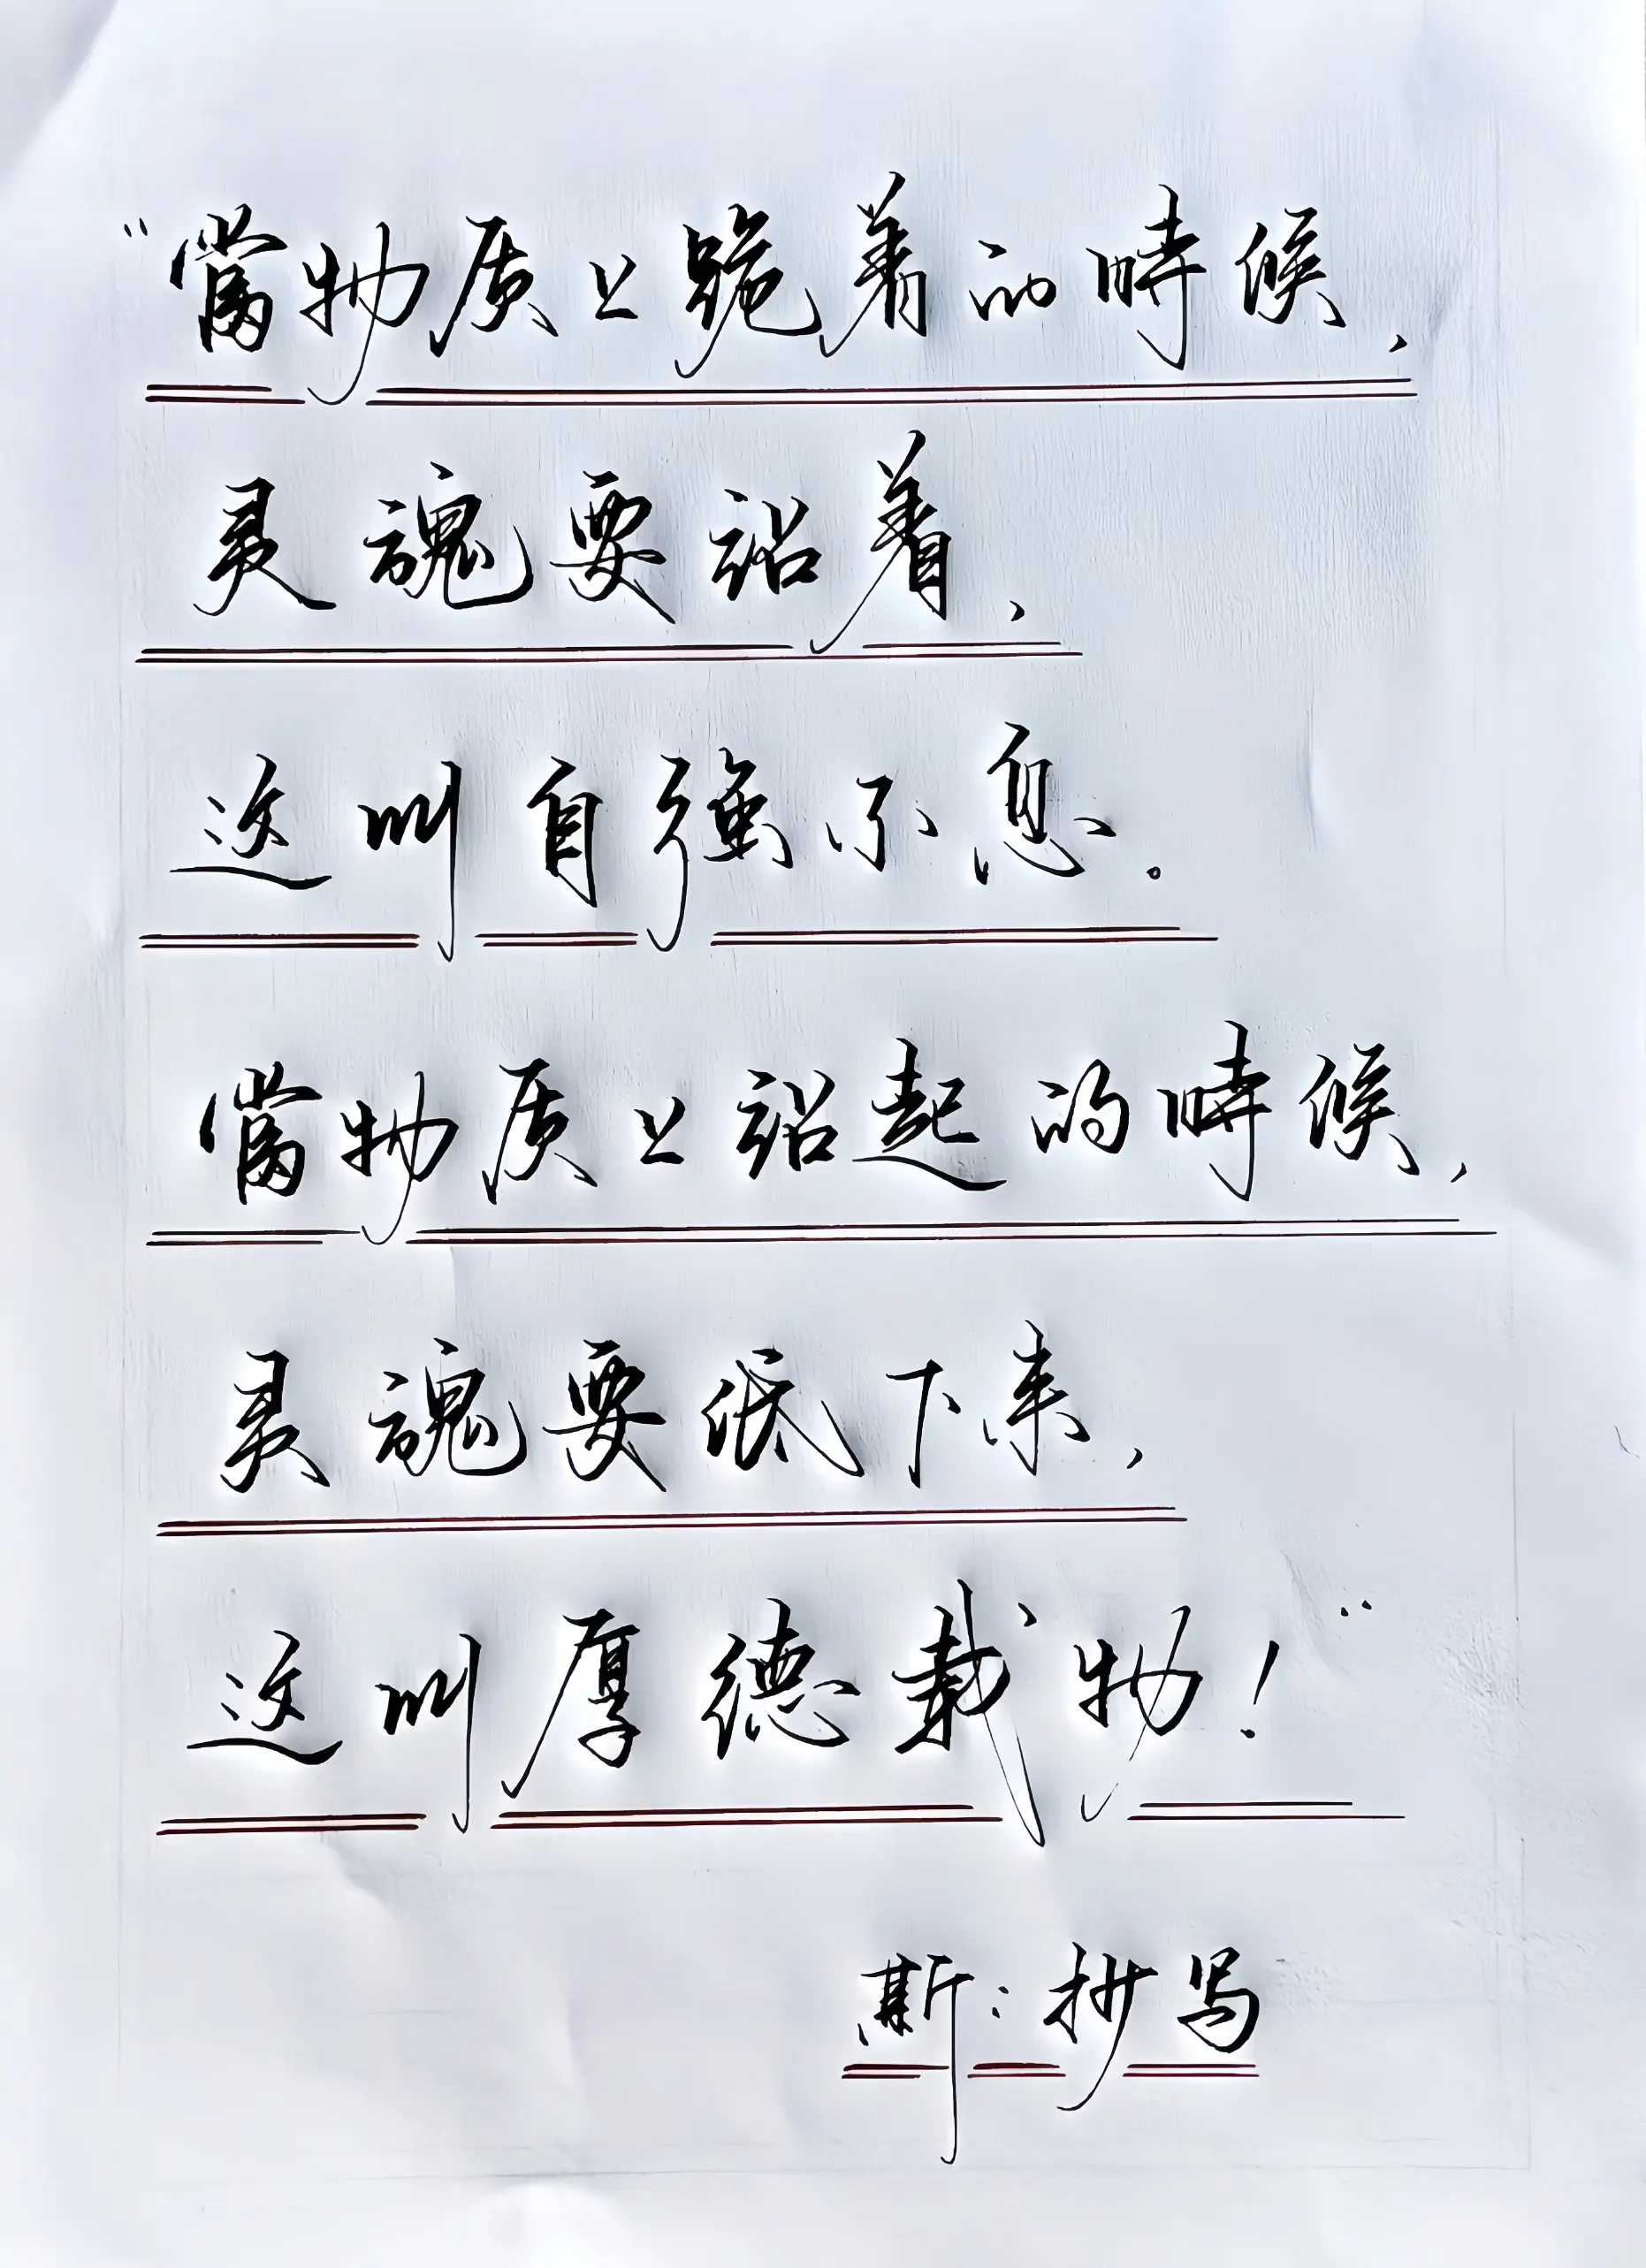 “當物质上跪着的時候，
灵魂要站着，
这叫自強不息。
當物质上站起的時候，
灵魂要低下来，
这叫厚德载物！”
斯：抄写